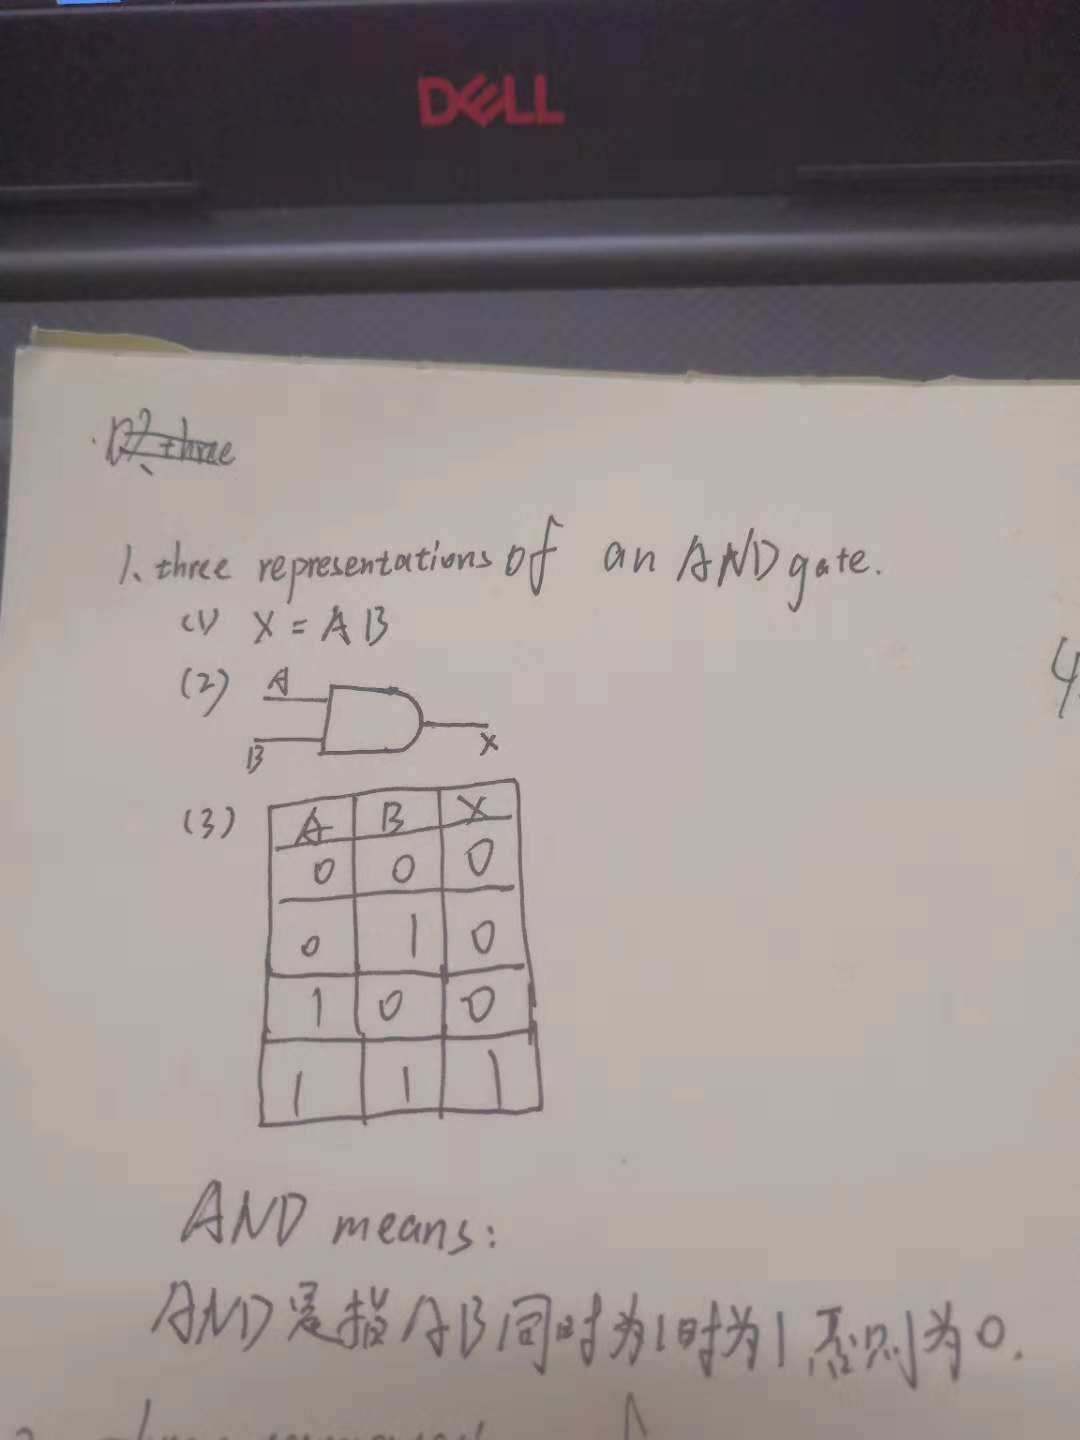 DELL
three
1、three representations of an AND gate.
(1) X = AB
(2) A
B
X
(3)
A B X
0 0 0
0 1 0
1 0 0
1 1 1
AND means:
AND是指AB同时为1时为1否则为0.
4.